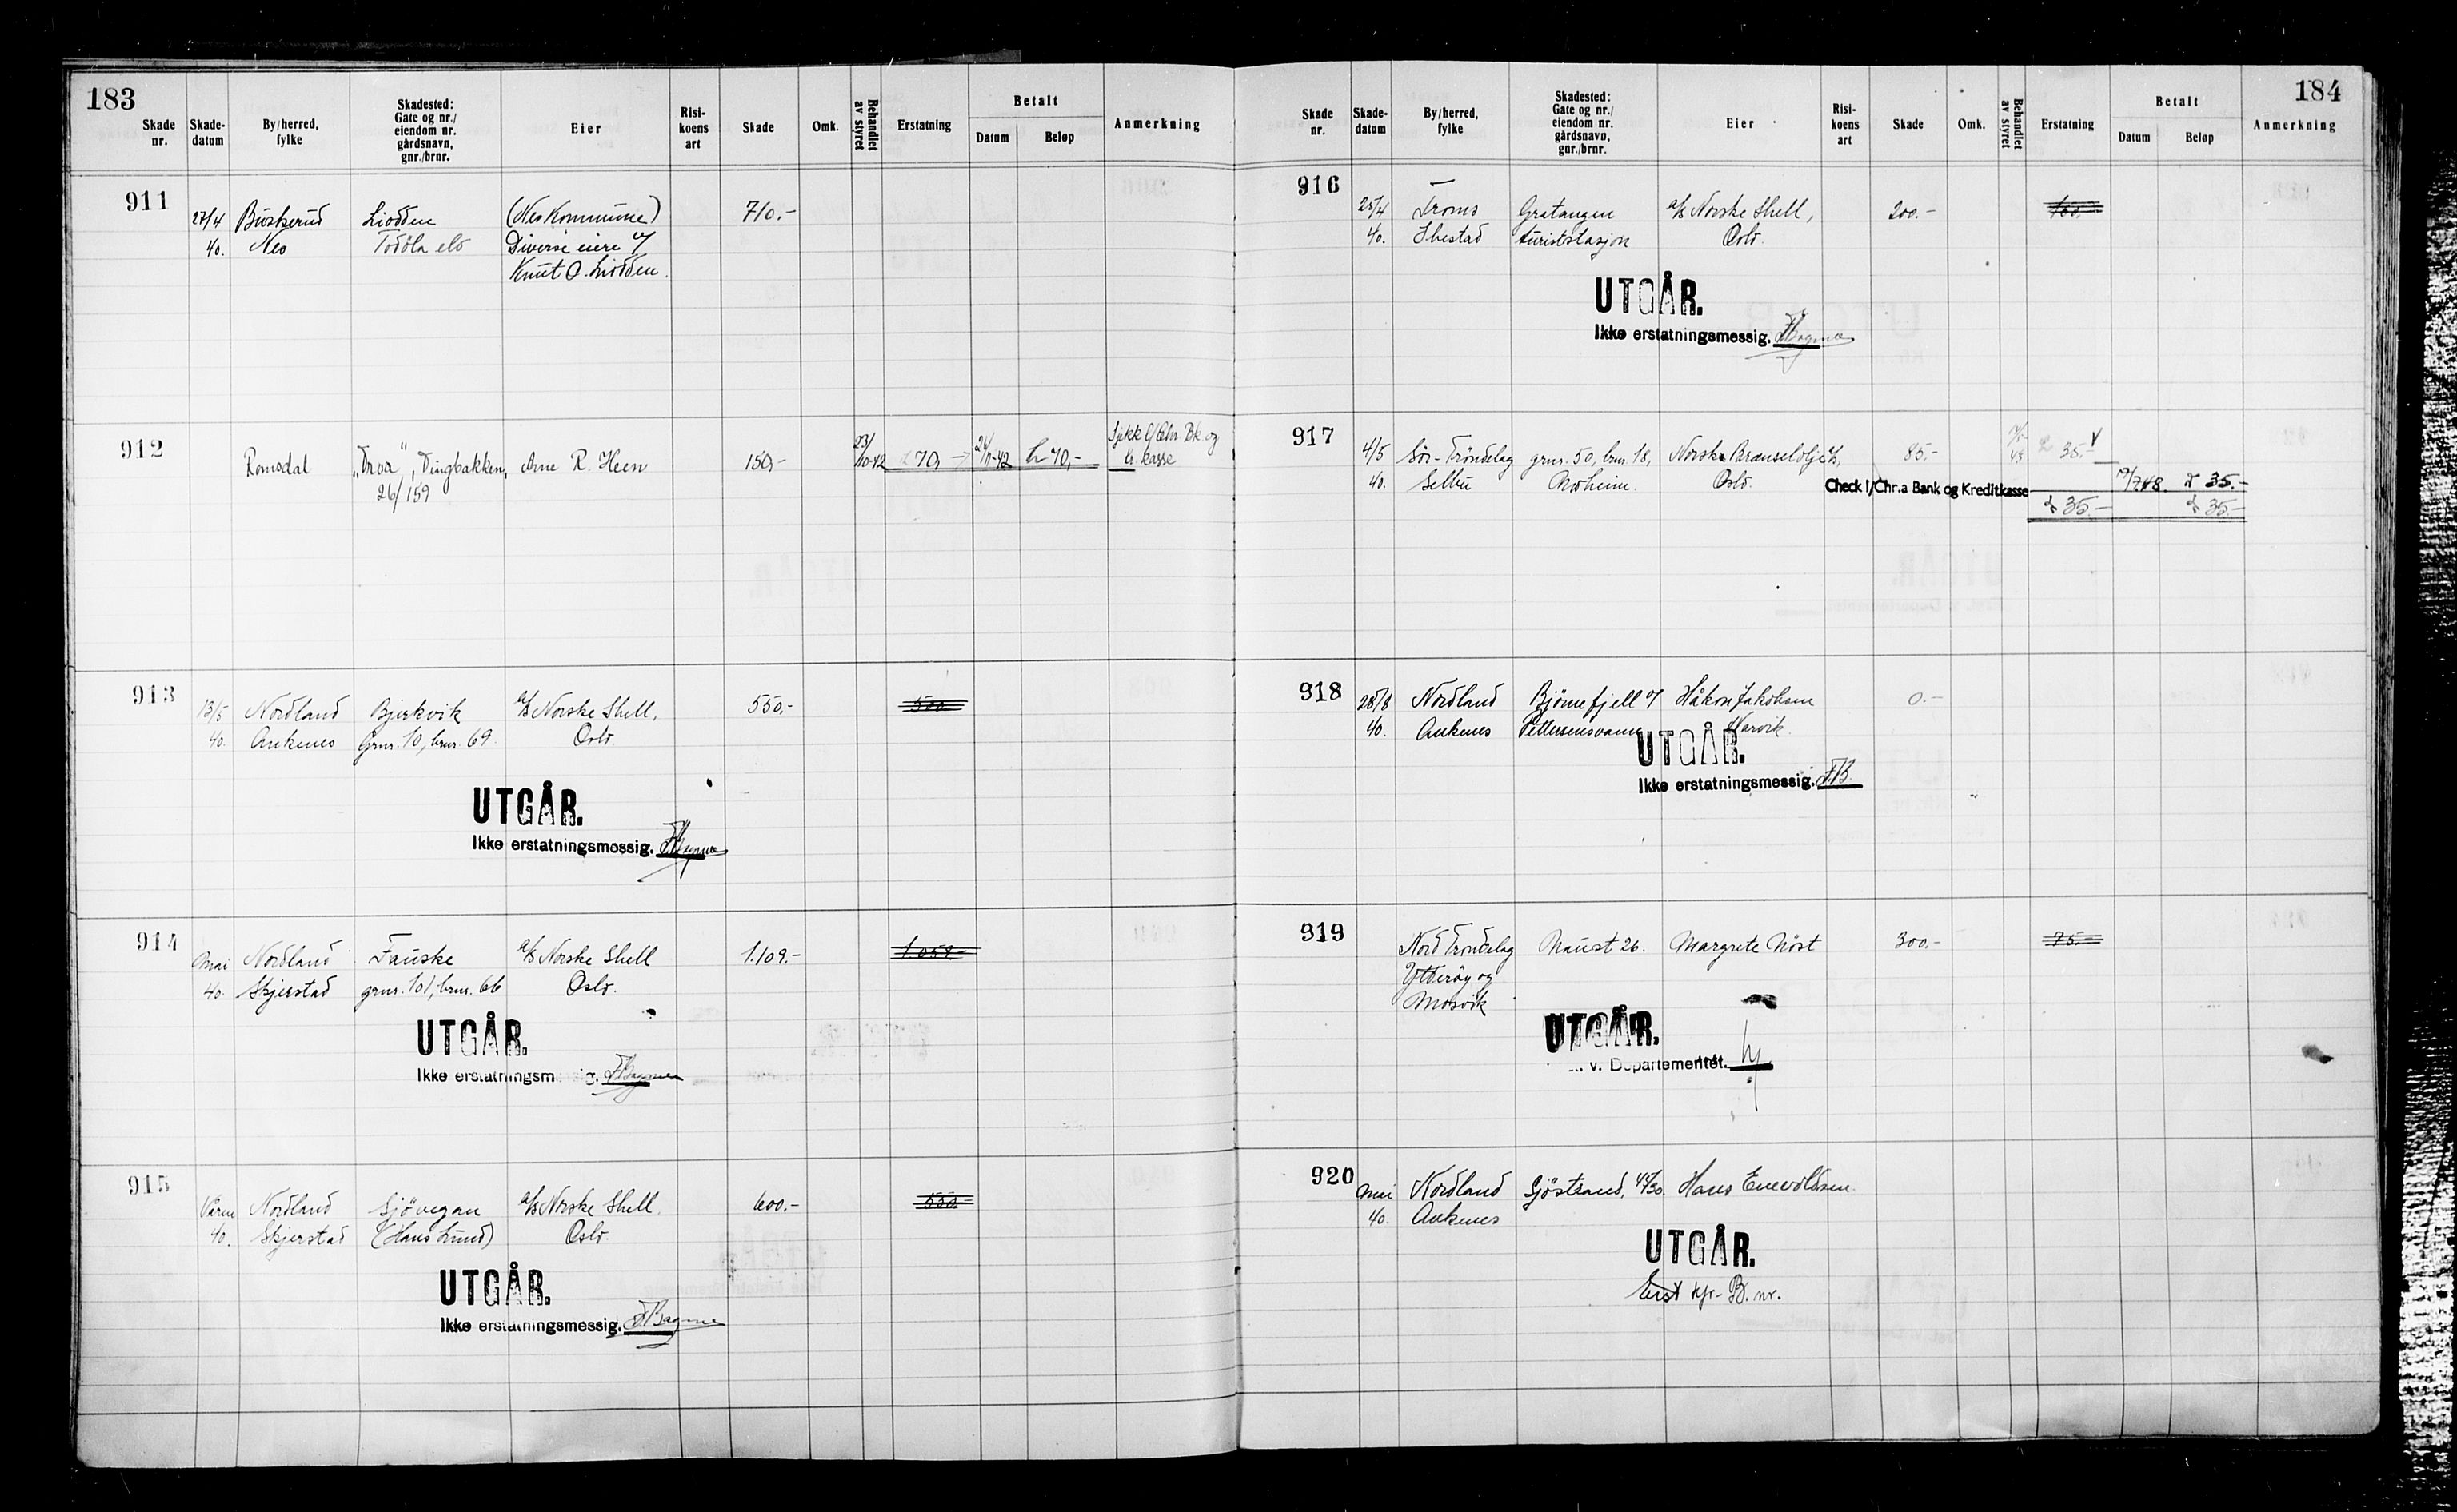 183
Skade nr. Skade-datum By/herred, fylke Skadested: Gate og nr./ eiendom nr. gårdsnavn, gnr./brnr. Eier Risi-koens art Skade Omk. Behandlet av styret Erstatning Betalt Datum Beløp Anmerkning
911
27/4 Buskerud Liodden (Nes Kommune) 710.-
40. Nes Todøla elv Diverse eiere v/
Knut O. Liodden.
912
Romsdal "Troa", Tingbakken, Arne R. Heen 150,- 23/10-42 70,- 24/11-42 kr 70,- Sjekk l/Chr. Bk. og
26/159 Kr. kasse
913
13/5 Nordland Bjerkvik a/s Norske Shell, 550,- 500
40. Ankenes Gnr. 10, bnr. 69. Oslo.
UTGÅR.
Ikke erstatningsmessig.
914
Mai Nordland Fauske a/s Norske Shell 1.109.- 1.059.-
40. Skjerstad gnr. 101, bnr. 66 Oslo.
UTGÅR.
Ikke erstatningsm sig.
915
Våren Nordland Sjøvegan a/s Norske Shell, 600,- 550.-
40. Skjerstad (Hans Lund) Oslo.
UTGÅR.
Ikke erstatningsmessig.
184
Skade nr. Skade-datum By/herred, fylke Skadested: Gate og nr./ eiendom nr. gårdsnavn, gnr./brnr. Eier Risi-koens art Skade Omk. Behandlet av styret Erstatning Betalt Datum Beløp Anmerkning
916
25/4 Troms Gratangen a/s Norske Shell, 200.-
40. Ibestad turiststasjon Oslo.
UTGÅR.
Ikke erstatningsmessig.
917
4/5 Sør-Trøndelag gnr. 50, bnr. 18, Norsk Brænselolje A/S, 85.- 35.-
40. Selbu Moheim. Oslo. Check l/Chr.a Bank og Kreditkasse 19/7 48. kr 35.-
kr 35.- kr 35.-
918
28/8 Nordland Bjørnefjell v/ Håkon Jakobsen 0.-
40. Ankenes Pettersensvann Narvik.
UTGÅR.
Ikke erstatningsmessig. FB.
919
Nord Trøndelag Naust 26. Margrete Nøst 300.- 75.-
Ytterøy og
Mosvik
UTGÅR.
v. Departementet.
920
Mai Nordland Sjøstrand, 44/30. Hans Enevoldsen.
40. Ankenes
UTGÅR.
Erst kfr. B. nr.